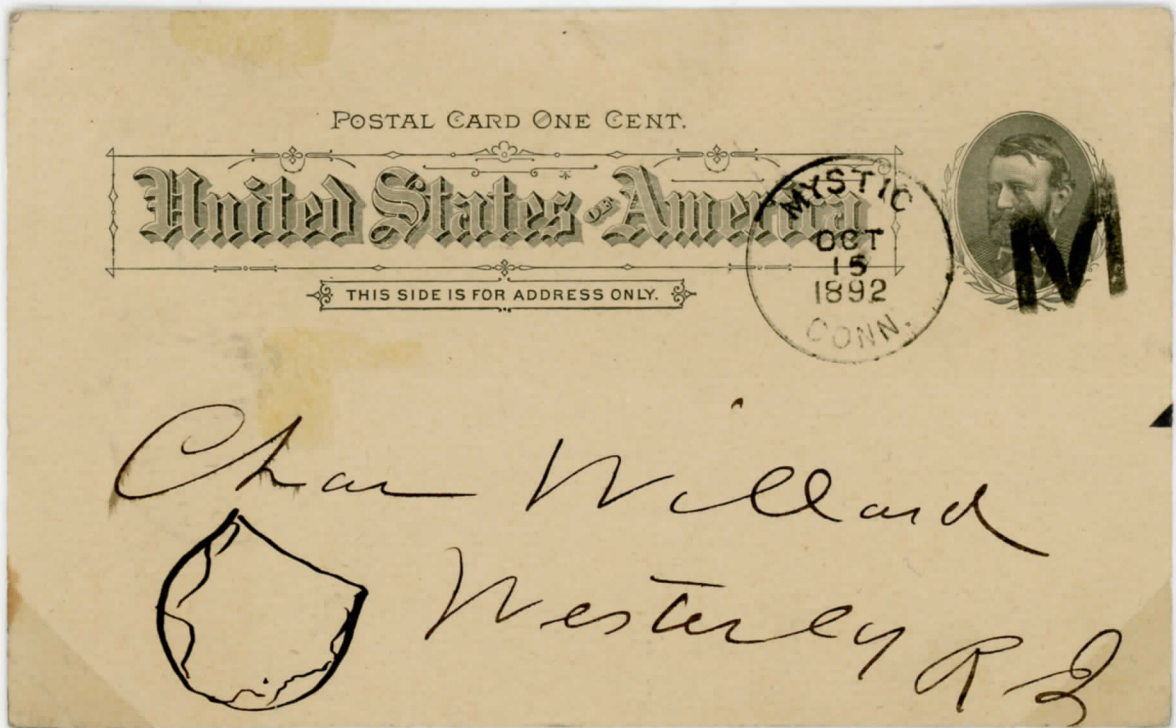 POSTAL CARD ONE CENT.
United States OF America
THIS SIDE IS FOR ADDRESS ONLY.
MYSTIC
OCT
15
1892
CONN.
M
Chas Willard
Westerly R I